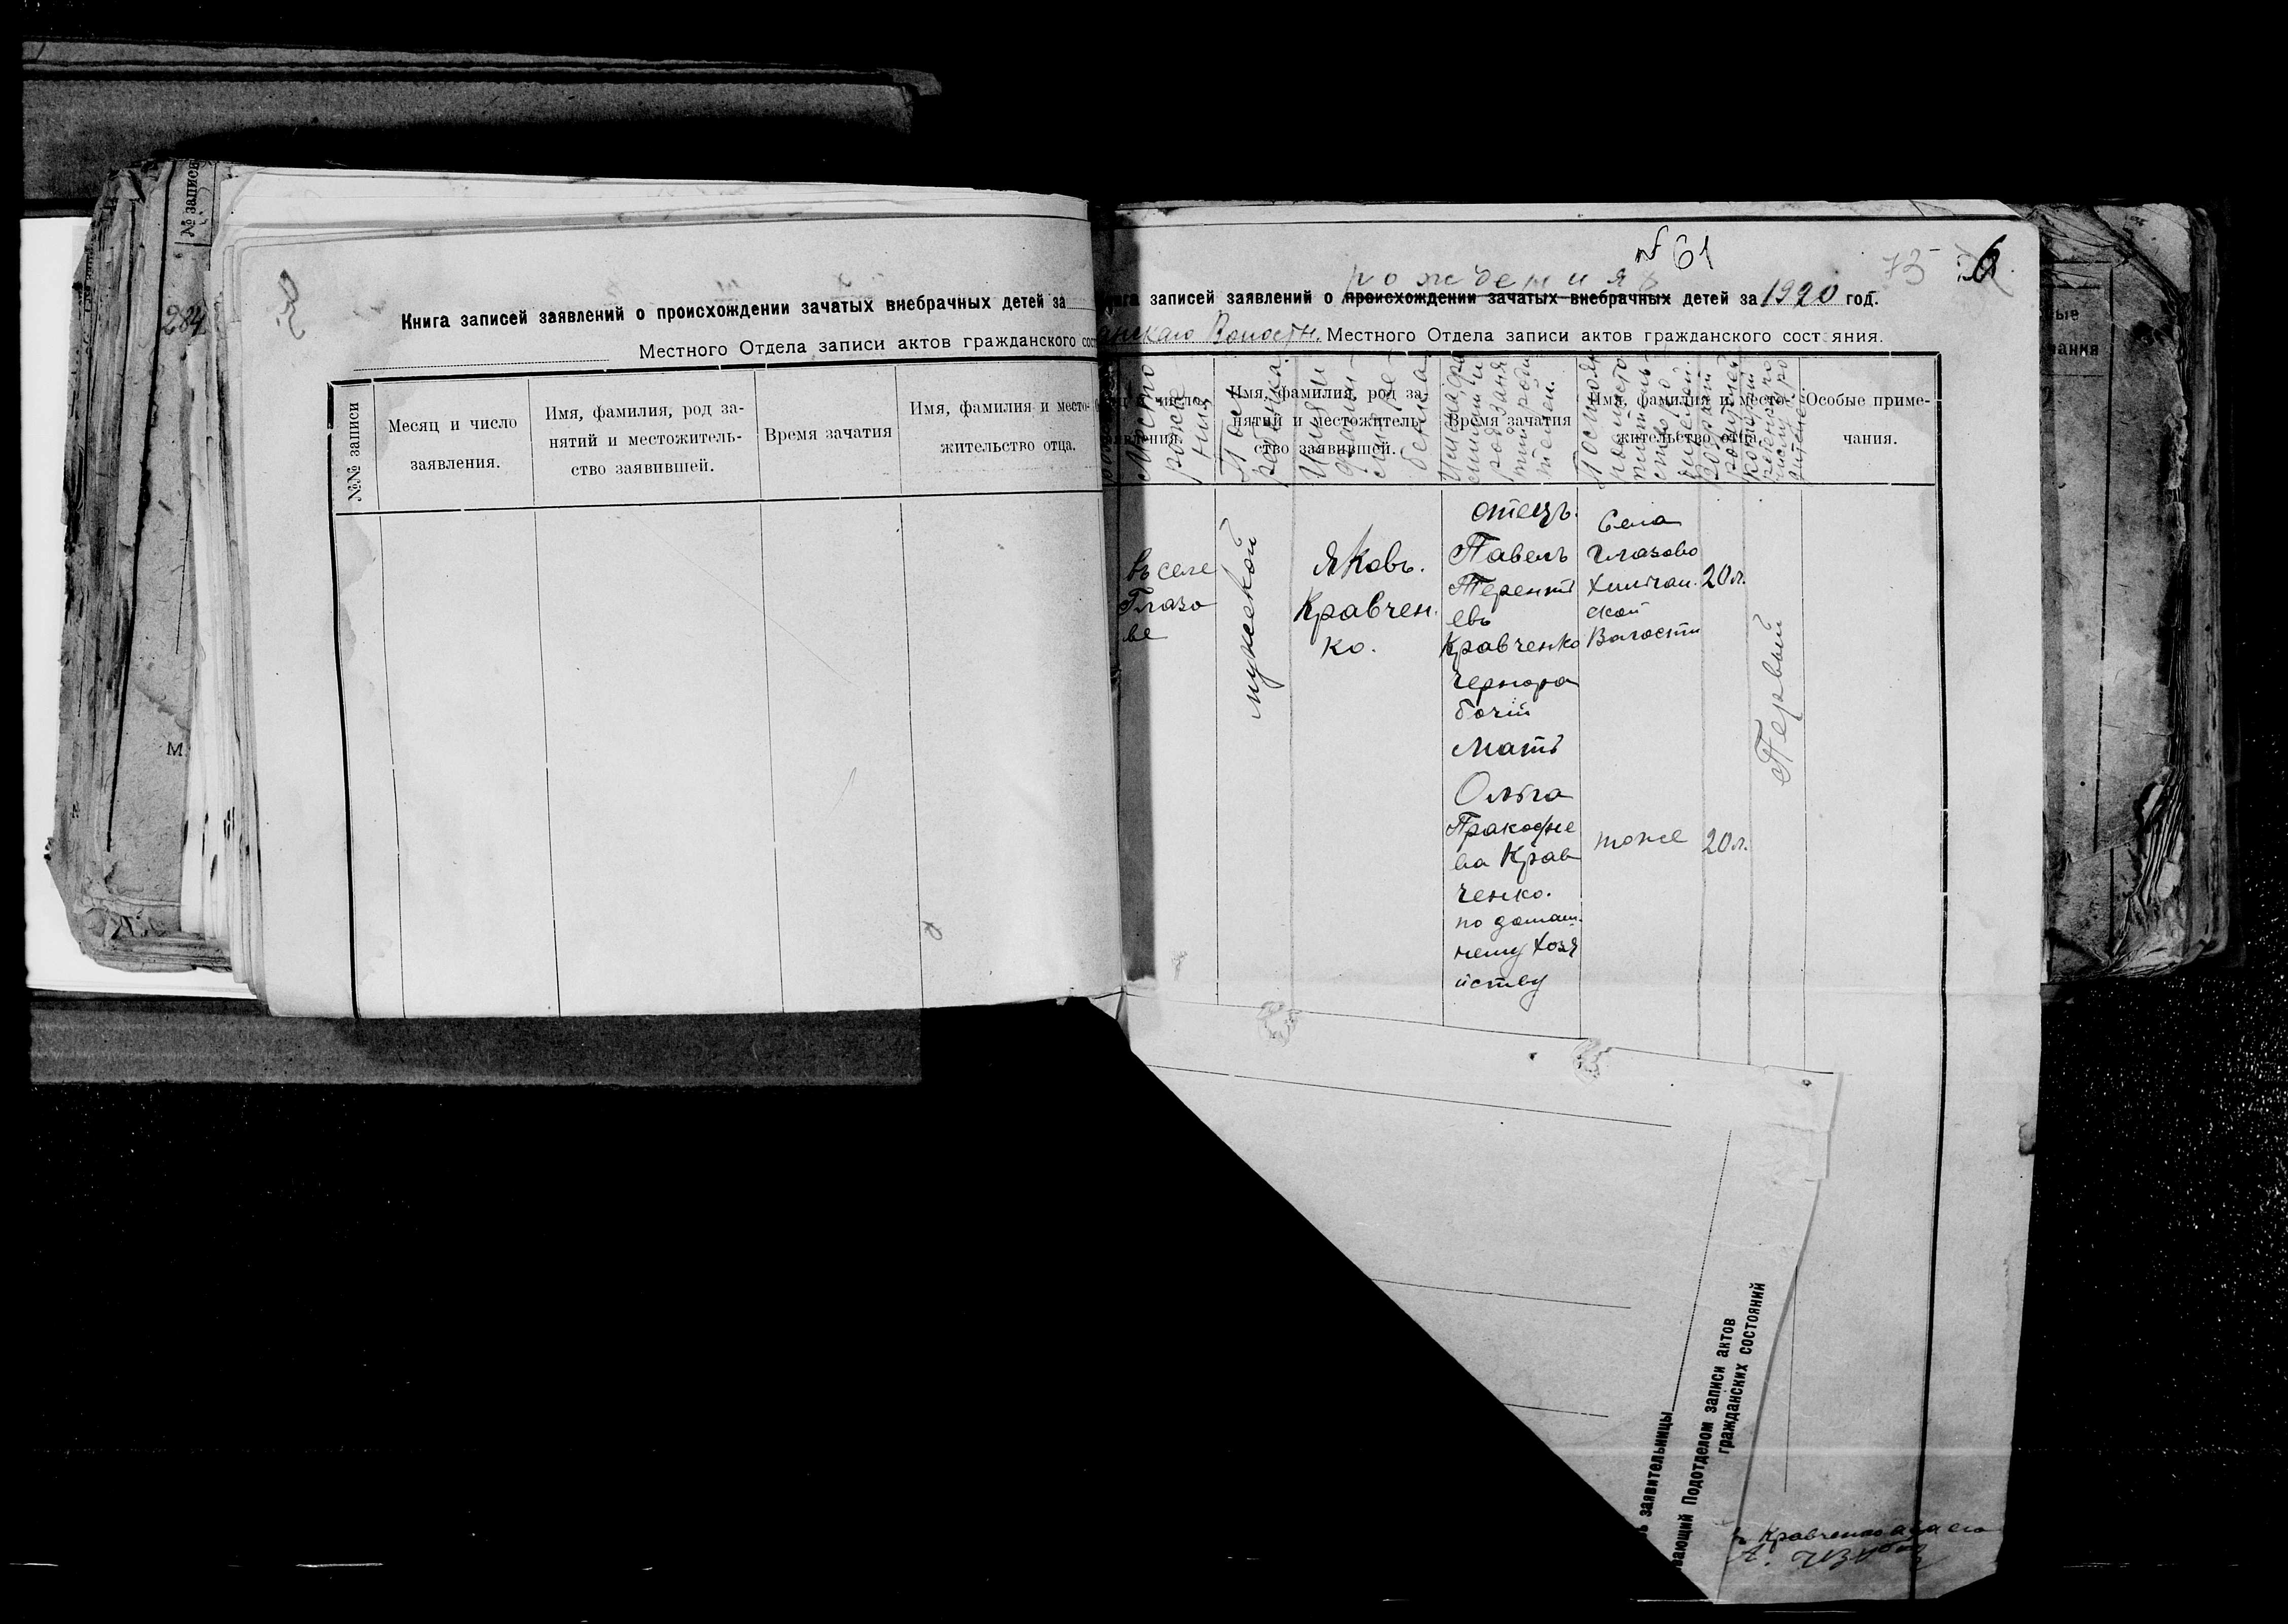 № записи
284
М.
Книга записей заявлений о происхождении зачатых внебрачных детей за
Местного Отдела записи актов гражданского сост
№№ записи
Месяц и число
заявления.
Имя, фамилия, род за-
нятий и местожитель-
ство заявившей.
Время зачатия
Имя, фамилия и место-
жительство отца.
№ 61
75
6
рождения
записей заявлений о происхождении зачатых внебрачных детей за 1920 год.
Волостн. Местного Отдела записи актов гражданского состояния.
число
Место
рожде
ния
Имя, фамилия, род за-
нятий и местожитель-
ство заявившей.
Пол
ребенка.
Время зачатия
Имя, фамилия и место-
жительство отца.
Особые приме-
чания.
въ селе
Глазо
ве
мужской
Яковъ.
Кравчен
ко.
отецъ.
Павелъ
Терентi
евъ
Кравченко
чернора
бочiй
Мать
Ольга
Пракофие
ва Крав
ченко.
по домаш.
нему хозя
йству
Села
Глазово
ской
Волости
20 л.
тоже
20 л.
Первый
заявительницы
Подотделом записи актов
гражданских состояний
Кравченко